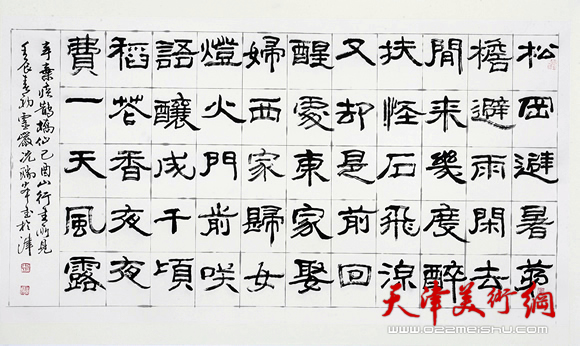 松岡避暑茅
檐避雨閑去
閒來幾度醉
扶怪石飛涼
又却是前回
醒處東家娶
婦西家歸女
燈火門前咲
語釀成千頃
稻花香夜夜
費一天風露
辛棄疾鵲橋仙己酉山行書所見
壬辰書於津
天津美術網
www.022meishu.com